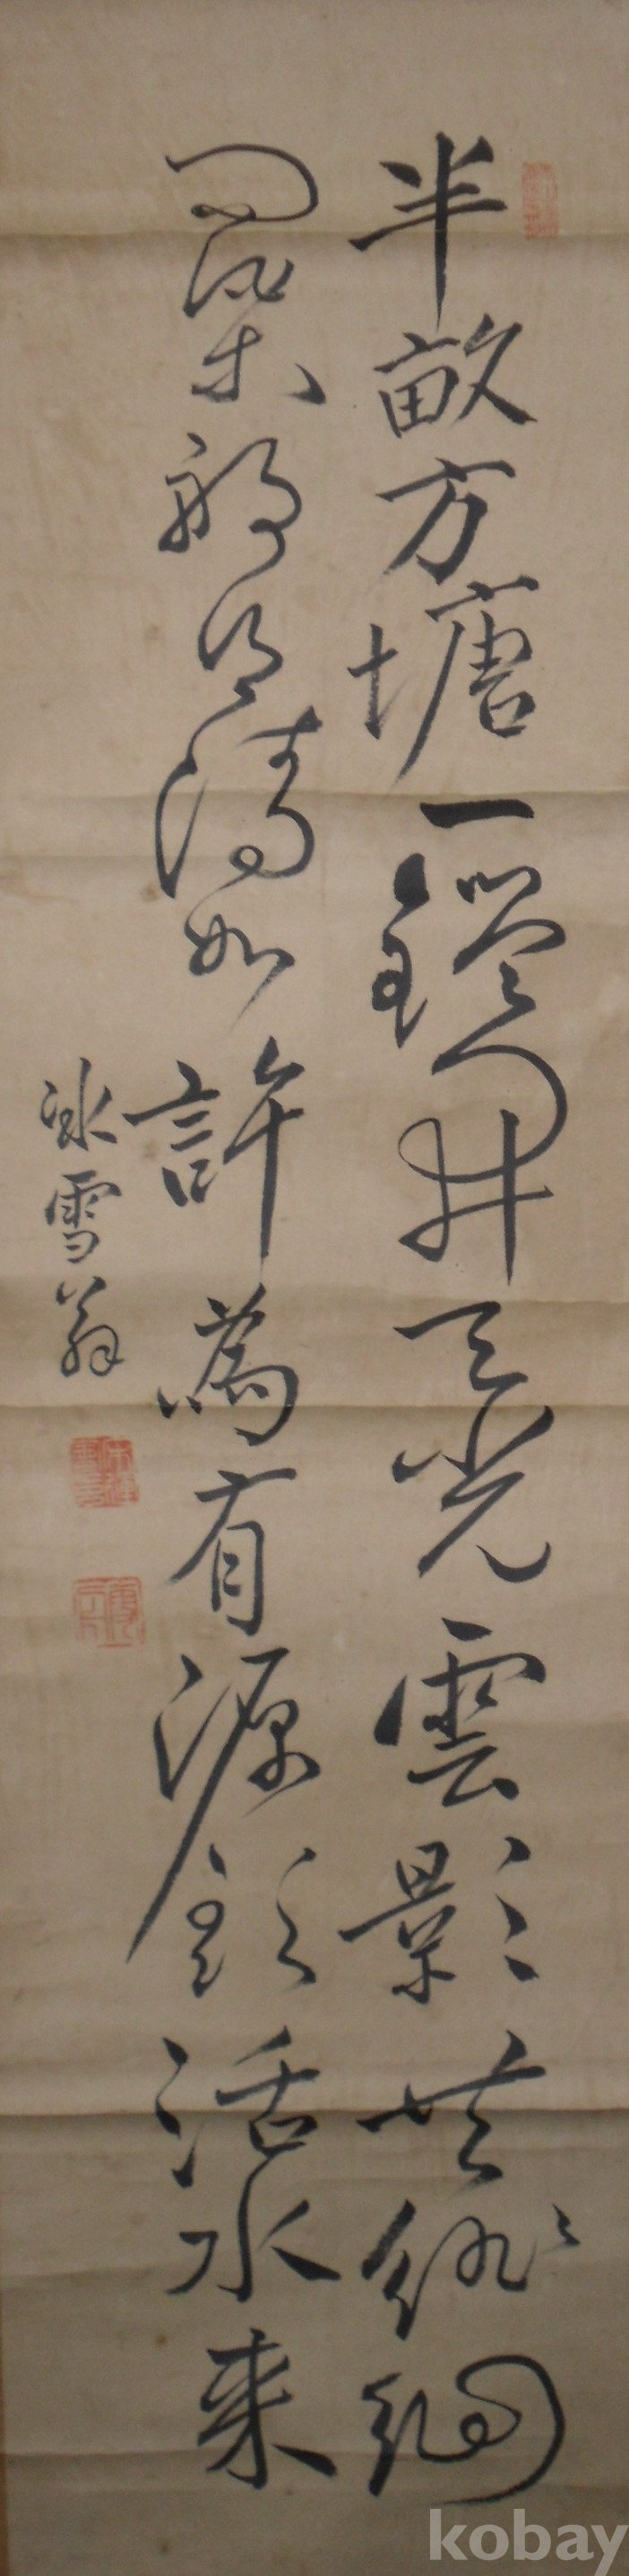 半畝方塘一鑑開天光雲影共徘徊
問渠那得清如許為有源頭活水来
氷雪翁
kobay